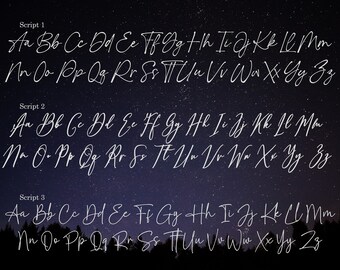 Script 1
Aa Bb Cc Dd Ee Ff Gg Hh Ii Jj Kk Ll Mm
Nn Oo Pp Qq Rr Ss Tt Uu Vv Ww Xx Yy Zz
Script 2
Aa Bb Cc Dd Ee Ff Gg Hh Ii Jj Kk Ll Mm
Nn Oo Pp Qq Rr Ss Tt Uu Vv Ww Xx Yy Zz
Script 3
Aa Bb Cc Dd Ee Ff Gg Hh Ii Jj Kk Ll Mm
Nn Oo Pp Qq Rr Ss Tt Uu Vv Ww Xx Yy Zz